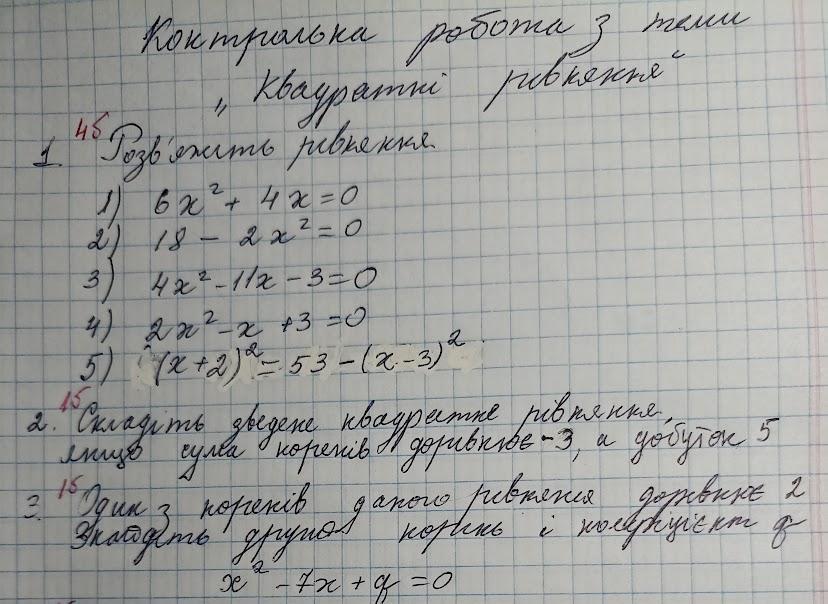 Контрольна робота з теми
„Квадратні рівняння"
1. 4б Розв'яжіть рівняння.
1) 6x² + 4x = 0
2) 18 - 2x² = 0
3) 4x² - 11x - 3 = 0
4) 2x² - x + 3 = 0
5) (x+2)² = 53 - (x-3)²
2. 1б Складіть зведене квадратне рівняння,
якщо сума коренів дорівнює -3, а добуток 5
3. 1б Один з коренів даного рівняння дорівнює 2
Знайдіть другий корінь і коефіцієнт q
x² - 7x + q = 0